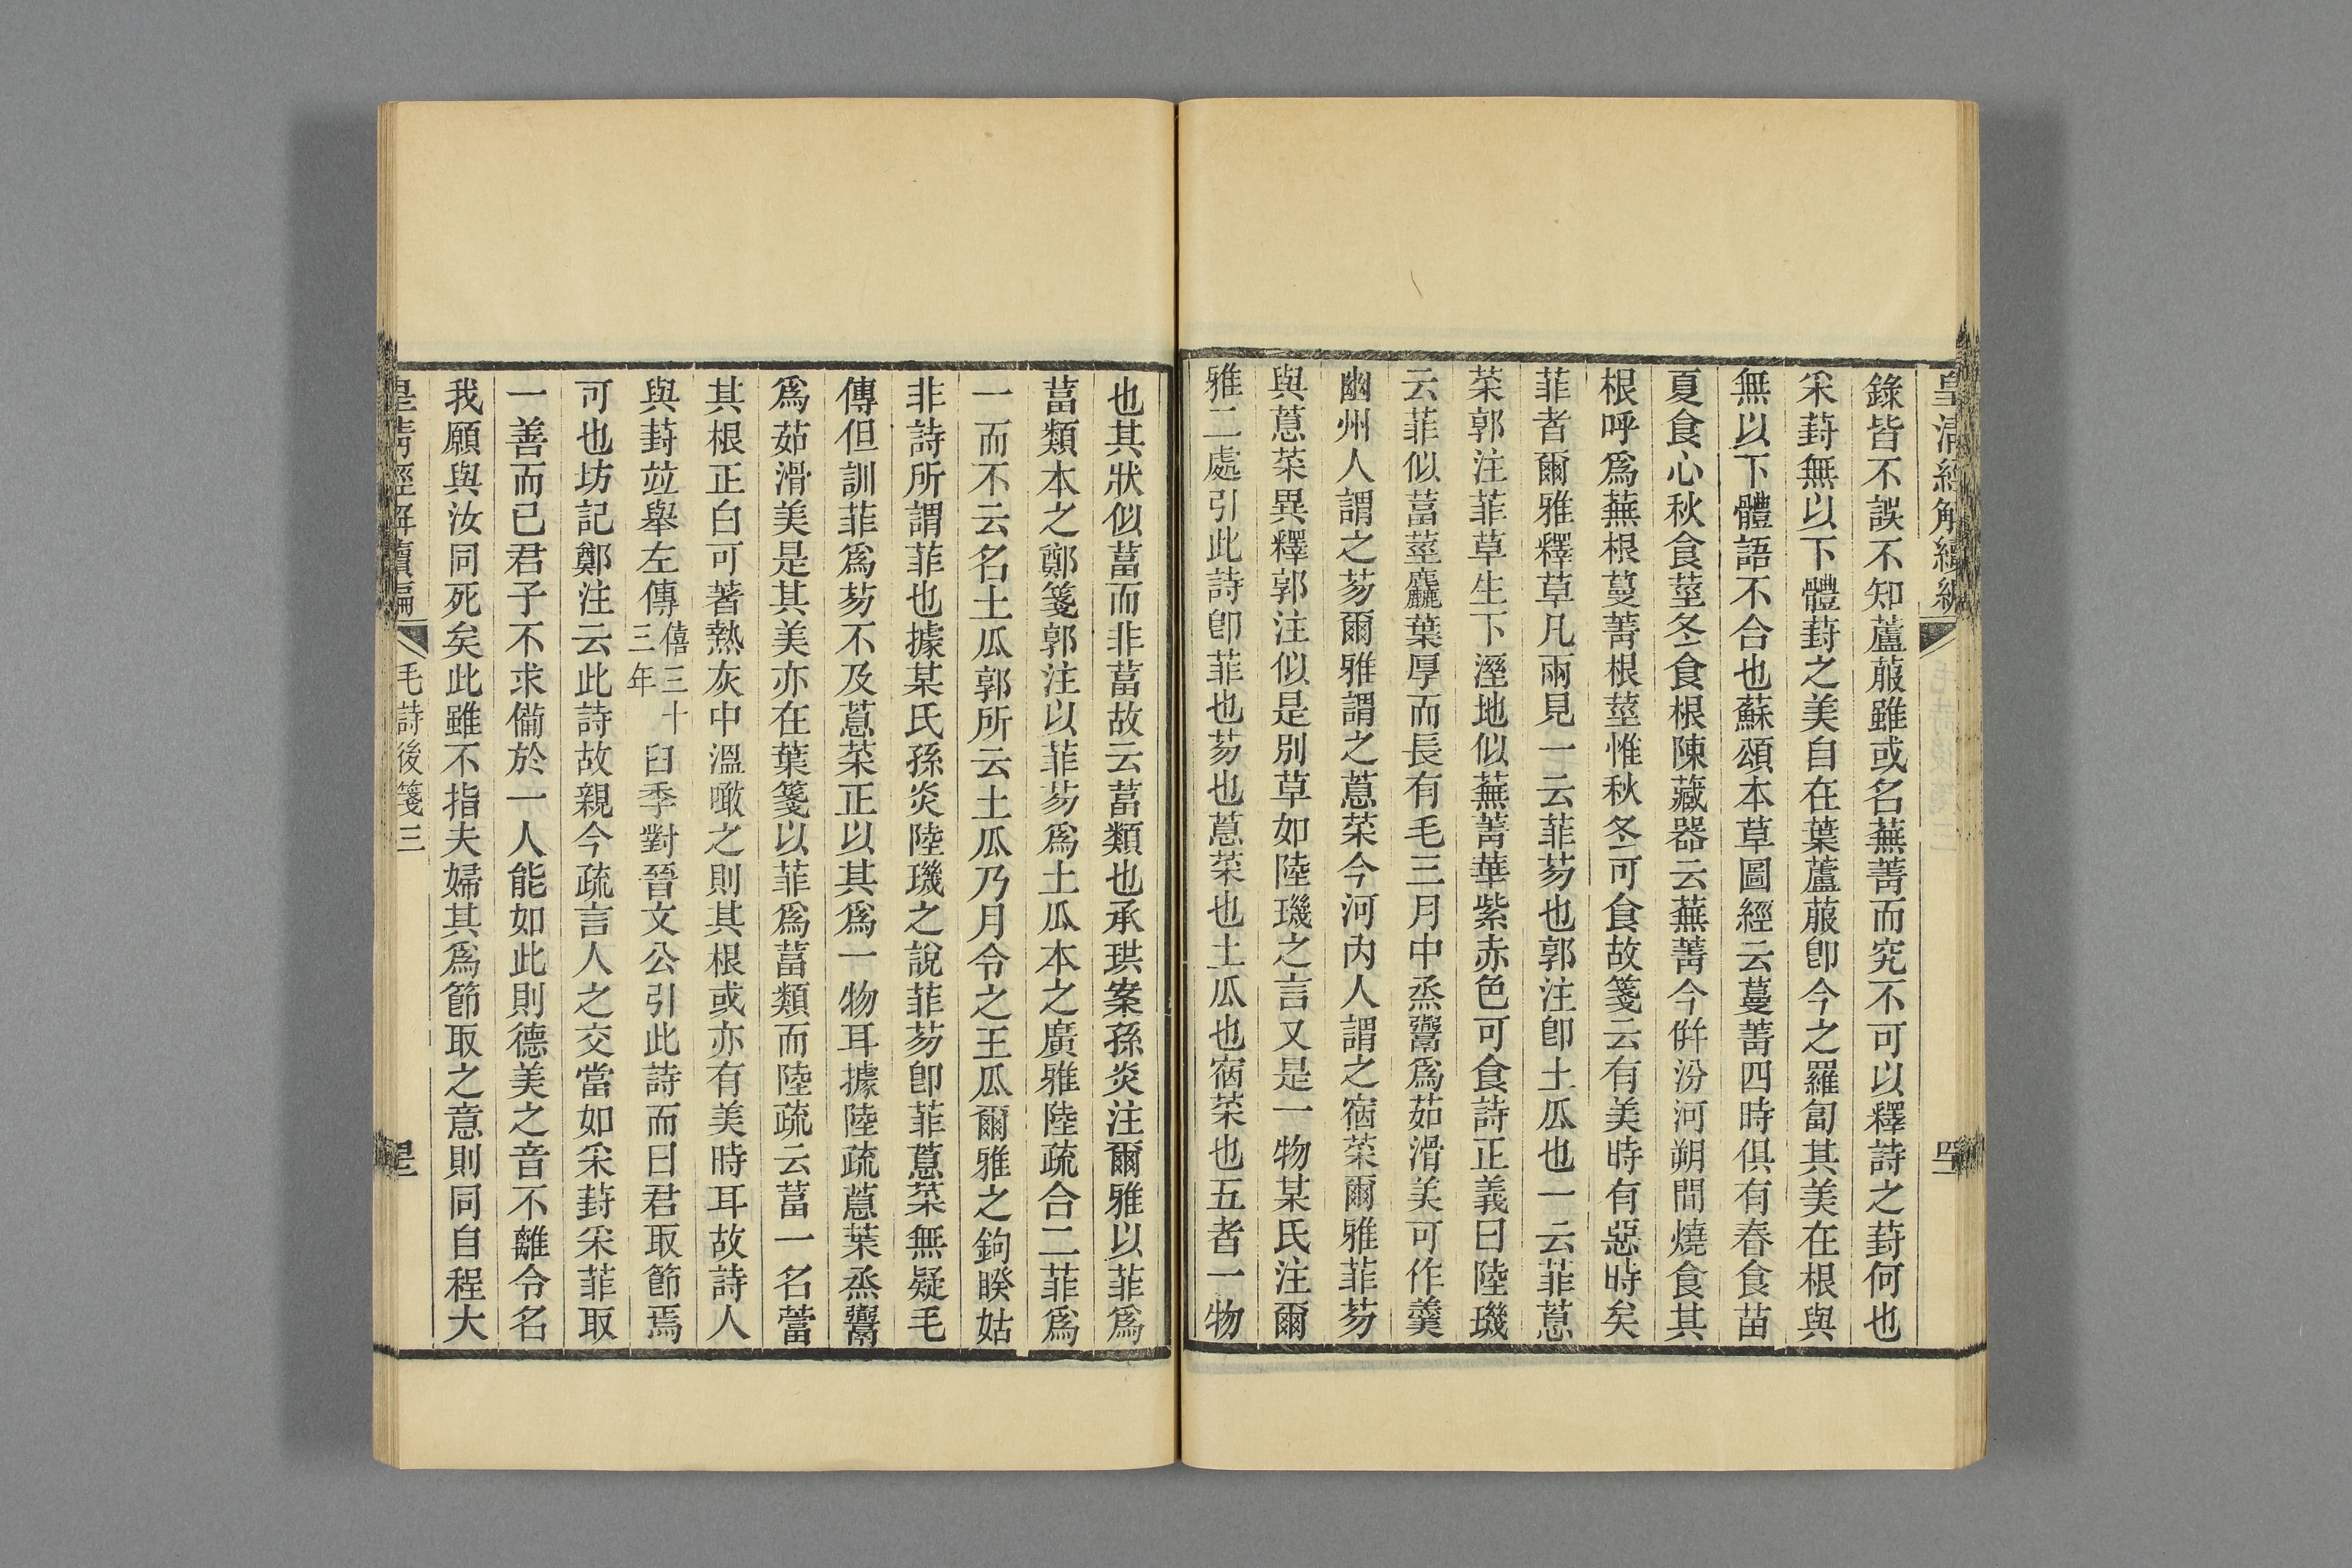 皇清經解續編
錄皆不誤不知蘆菔雖或名蕪菁而究不可以釋詩之葑何也
采葑無以下體葑之美自在葉蘆菔卽今之羅匐其美在根與
無以下體語不合也蘇頌本草圖經云蔓菁四時俱有春食苗
夏食心秋食莖冬食根陳藏器云蕪菁今倂汾河朔間燒食其
根呼爲蕪根蔓菁根莖惟秋冬可食故箋云有美時有惡時矣
菲者爾雅釋草凡兩見一云菲芴也郭注卽土瓜也一云菲蒠
菜郭注菲草生下溼地似蕪菁華紫赤色可食詩正義曰陸璣
云菲似葍莖麤葉厚而長有毛三月中烝鬻爲茹滑美可作羹
幽州人謂之芴爾雅謂之蒠菜今河內人謂之宿菜爾雅菲芴
與蒠菜異釋郭注似是別草如陸璣之言又是一物某氏注爾
雅二處引此詩卽菲也芴也蒠菜也土瓜也宿菜也五者一物
也其狀似葍而非葍故云葍類也承珙案孫炎注爾雅以菲爲
葍類本之鄭箋郭注以菲芴爲土瓜本之廣雅陸疏合二菲爲
一而不云名土瓜郭所云土瓜乃月令之王瓜爾雅之鉤䁖姑
非詩所謂菲也據某氏孫炎陸璣之說菲芴卽菲蒠菜無疑毛
傳但訓菲爲芴不及蒠菜正以其爲一物耳據陸疏蒠葉烝鬻
爲茹滑美是其美亦在葉箋以菲爲葍類而陸疏云葍一名䔰
其根正白可著熱灰中溫噉之則其根或亦有美時耳故詩人
與葑竝舉左傳僖三十三年臼季對晉文公引此詩而曰君取節焉
可也坊記鄭注云此詩故親今疏言人之交當如采葑采菲取
一善而已君子不求備於一人能如此則德美之音不離令名
我願與汝同死矣此雖不指夫婦其爲節取之意則同自程大
皇清經解續編 毛詩後箋三